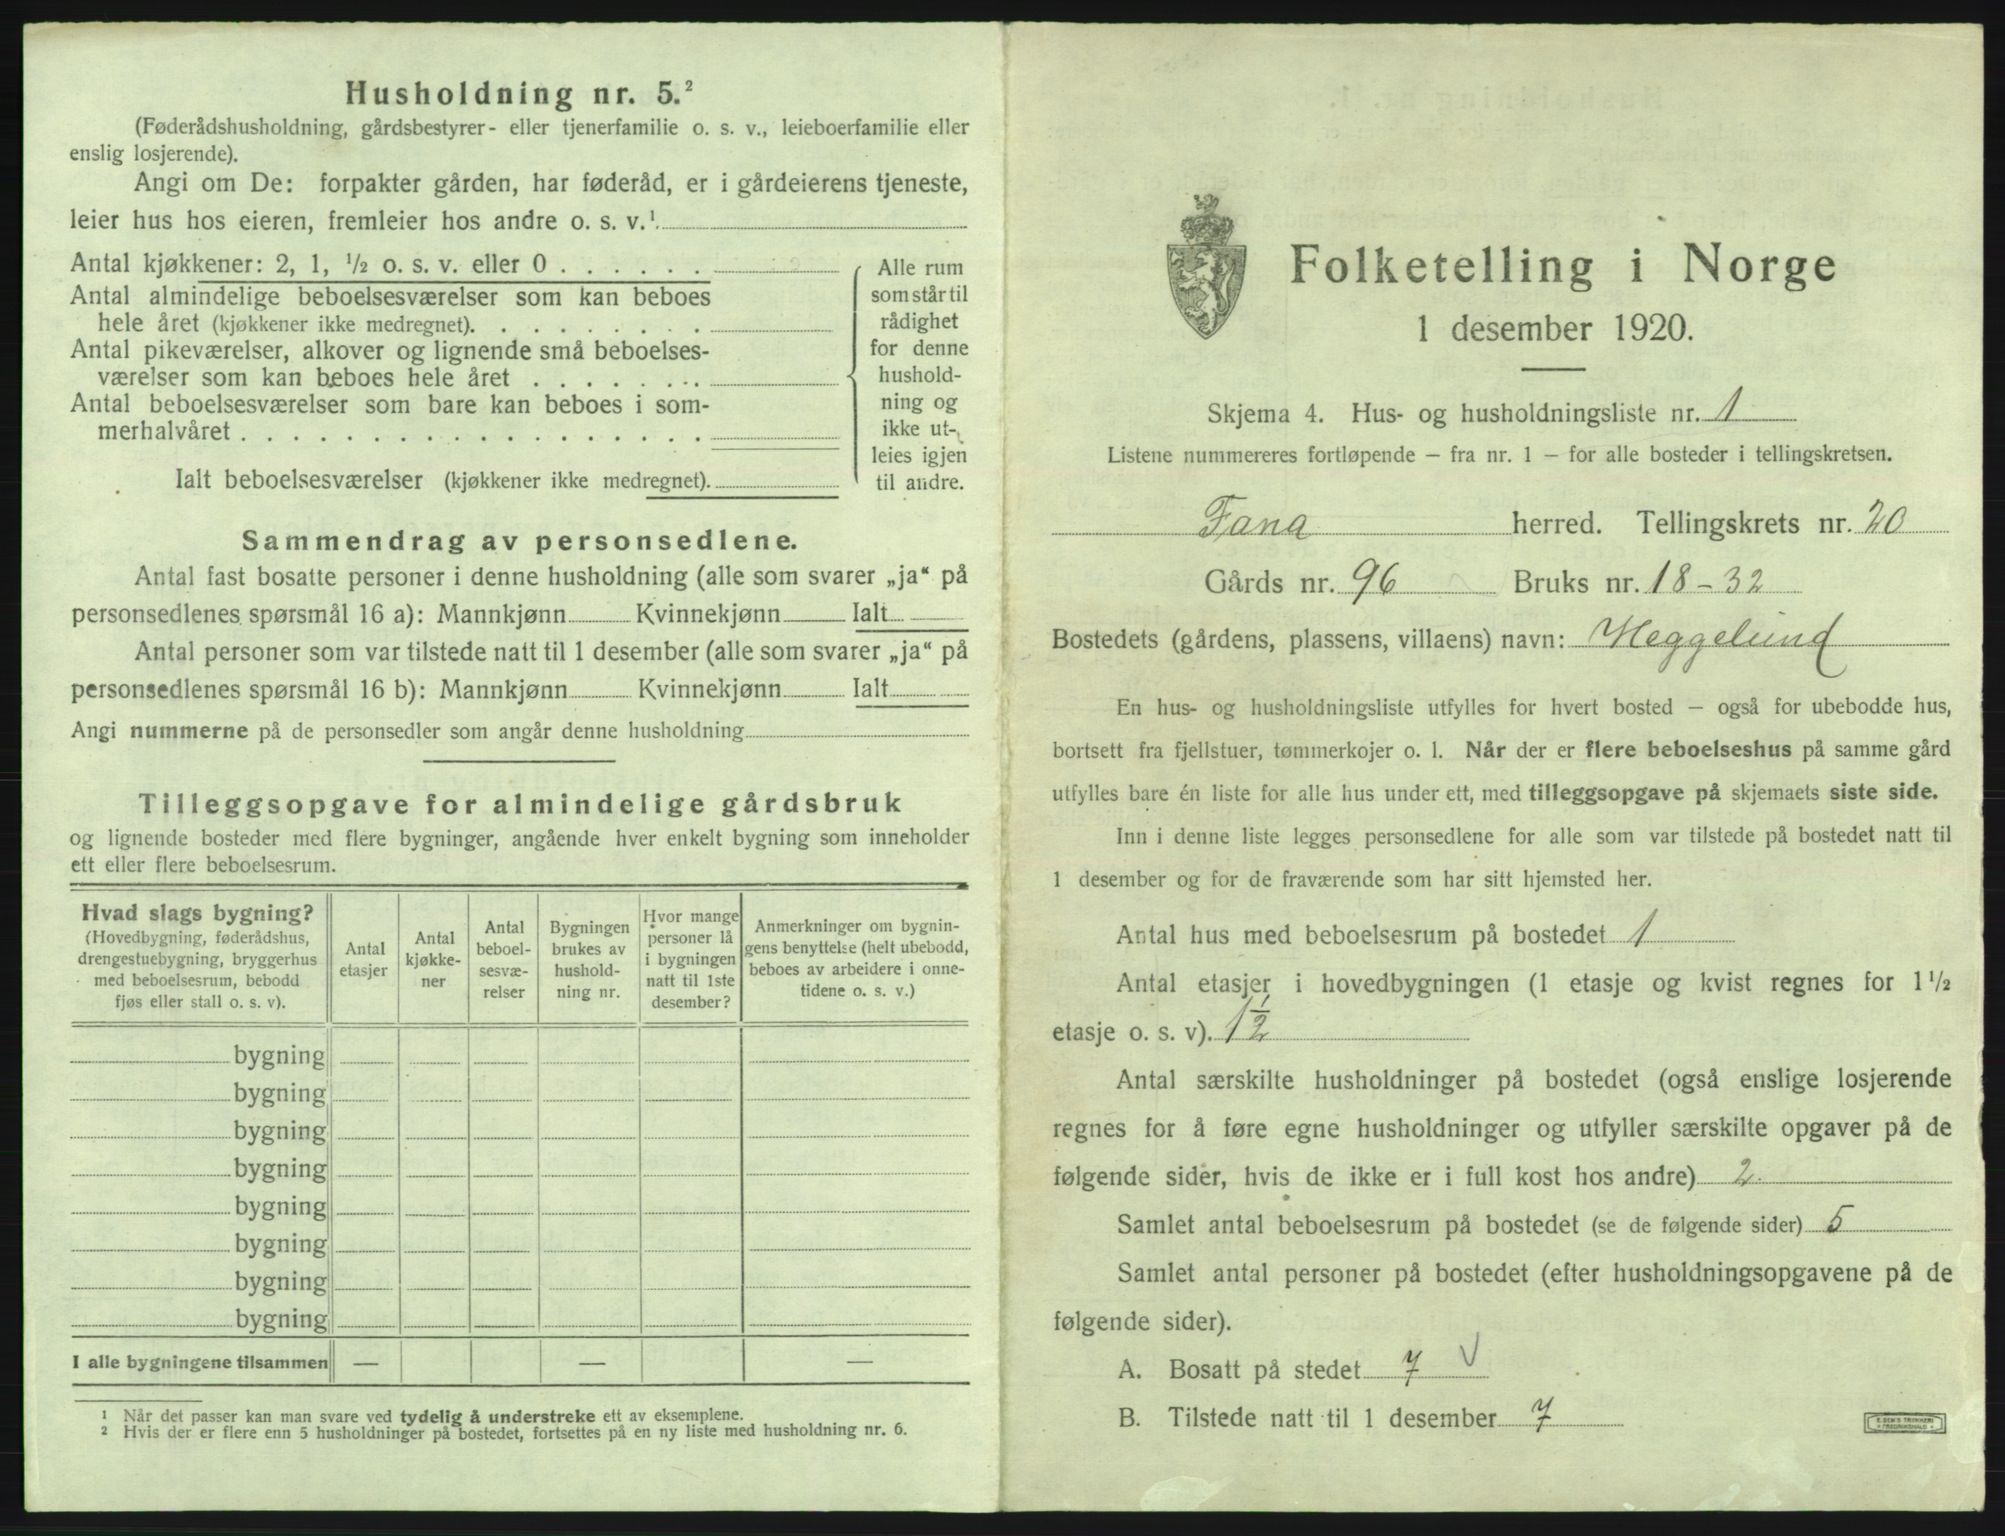 Husholdning nr. 5.²
(Føderådshusholdning, gårdsbestyrer- eller tjenerfamilie o. s. v., leieboerfamilie eller
enslig losjerende).
Angi om De: forpakter gården, har føderåd, er i gårdeierens tjeneste,
leier hus hos eieren, fremleier hos andre o. s. v.¹
Antal kjøkkener: 2, 1, ½ o. s. v. eller 0
Antal almindelige beboelsesværelser som kan beboes
hele året (kjøkkener ikke medregnet).
Antal pikeværelser, alkover og lignende små beboelses-
værelser som kan beboes hele året
Antal beboelsesværelser som bare kan beboes i som-
merhalvåret
Ialt beboelsesværelser (kjøkkener ikke medregnet).
Alle rum
som står til
rådighet
for denne
hushold-
ning og
ikke ut-
leies igjen
til andre.
Sammendrag av personsedlene.
Antal fast bosatte personer i denne husholdning (alle som svarer „ja“ på
personsedlenes spørsmål 16 a): Mannkjønn Kvinnekjønn Ialt
Antal personer som var tilstede natt til 1 desember (alle som svarer „ja“ på
personsedlenes spørsmål 16 b): Mannkjønn Kvinnekjønn Ialt
Angi nummerne på de personsedler som angår denne husholdning
Tilleggsopgave for almindelige gårdsbruk
og lignende bosteder med flere bygninger, angående hver enkelt bygning som inneholder
ett eller flere beboelsesrum.
Hvad slags bygning?
(Hovedbygning, føderådshus,
drengestuebygning, bryggerhus
med beboelsesrum, bebodd
fjøs eller stall o. s. v).
Antal
etasjer
Antal
kjøkke-
ner
Antal
beboel-
sesvæ-
relser
Bygningen
brukes av
hushold-
ning nr.
Hvor mange
personer lå
i bygningen
natt til 1ste
desember?
Anmerkninger om bygnin-
gens benyttelse (helt ubebodd,
beboes av arbeidere i onne-
tidene o. s. v.)
bygning
bygning
bygning
bygning
bygning
bygning
bygning
bygning
I alle bygningene tilsammen — — —
¹ Når det passer kan man svare ved tydelig å understreke ett av eksemplene.
² Hvis der er flere enn 5 husholdninger på bostedet, fortsettes på en ny liste med husholdning nr. 6.
Folketelling i Norge
1 desember 1920.
Skjema 4. Hus- og husholdningsliste nr. 1
Listene nummereres fortløpende — fra nr. 1 — for alle bosteder i tellingskretsen.
Fana herred. Tellingskrets nr. 20
Gårds nr. 96 Bruks nr. 18-32
Bostedets (gårdens, plassens, villaens) navn: Heggelund
En hus- og husholdningsliste utfylles for hvert bosted — også for ubebodde hus,
bortsett fra fjellstuer, tømmerkojer o. l. Når der er flere beboelseshus på samme gård
utfylles bare én liste for alle hus under ett, med tilleggsopgave på skjemaets siste side.
Inn i denne liste legges personsedlene for alle som var tilstede på bostedet natt til
1 desember og for de fraværende som har sitt hjemsted her.
Antal hus med beboelsesrum på bostedet 1
Antal etasjer i hovedbygningen (1 etasje og kvist regnes for 1½
etasje o. s. v). 1½
Antal særskilte husholdninger på bostedet (også enslige losjerende
regnes for å føre egne husholdninger og utfyller særskilte opgaver på de
følgende sider, hvis de ikke er i full kost hos andre) 2.
Samlet antal beboelsesrum på bostedet (se de følgende sider) 5
Samlet antal personer på bostedet (efter husholdningsopgavene på de
følgende sider).
A. Bosatt på stedet 7 V
B. Tilstede natt til 1 desember 7
E. SEM'S TRYKKERI
FREDRIKSHALD